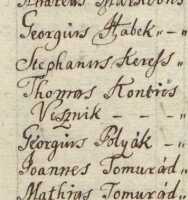 Georgius Habek „ - „
Stephanus Keress „
Thomas Kontiós
Visznik - - - „
Georgius Polyák - „
Joannes Tomurád „
Mathias Tomurád „